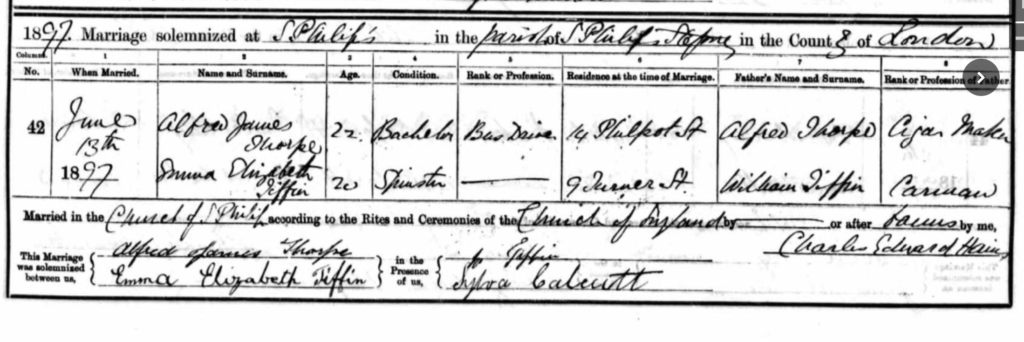 1897. Marriage solemnized at S Philip's in the parish of S Philip, Stepney in the County of London
Columns. 1 2 3 4 5 6 7 8
No. When Married. Name and Surname. Age. Condition. Rank or Profession. Residence at the time of Marriage. Father's Name and Surname. Rank or Profession of Father
42 June 13th 1897 Alfred James Thorpe 22. Bachelor Bus Driver 14 Philpot St Alfred Thorpe Cigar Maker
Emma Elizabeth Tiffin 20 Spinster — 9 Turner St William Tiffin Carman
Married in the Church of S Philip according to the Rites and Ceremonies of the Church of England by — or after banns by me,
Charles Edward
This Marriage was solemnized between us, { Alfred James Thorpe } in the Presence of us, { Tiffin
Emma Elizabeth Tiffin Calcutt